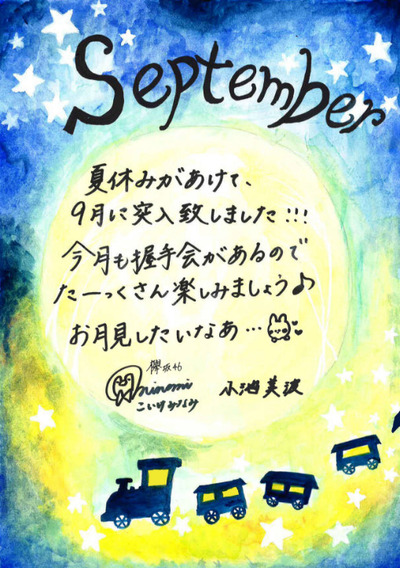 September
夏休みがあけて、
9月に突入致しました!!!
今月も握手会があるので
たーっくさん楽しみましょう♪
お月見したいなあ…
欅坂46
minami
こいけみなみ
小池美波